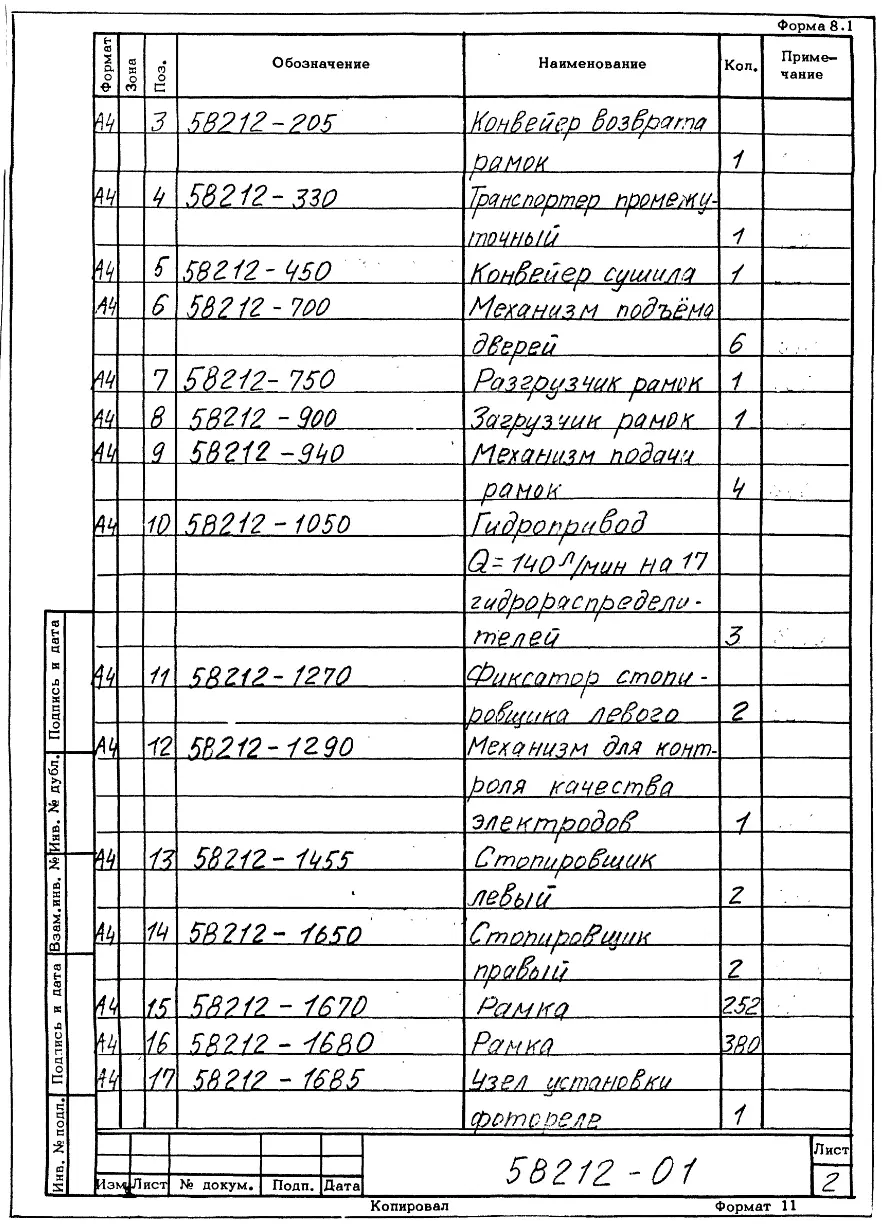 Форма 8.1
Формат Зона Поз. Обозначение Наименование Кол. Приме-
чание
А4 3 58212-205 Конвейер возврата
рамок 1
А4 4 58212-330 Транспортер промежу-
точный 1
А4 5 58212-450 Конвейер сушила 1
А4 6 58212-700 Механизм подъёма
дверей 6
А4 7 58212-750 Разгрузчик рамок 1
А4 8 58212-900 Загрузчик рамок 1
А4 9 58212-940 Механизм подачи
рамок 4
А4 10 58212-1050 Гидропривод
Q=140 л/мин на 17
гидрораспредели-
телей 3
А4 11 58212-1270 Фиксатор стопи-
ровщика левого 2
А4 12 58212-1290 Механизм для конт-
роля качества
электродов 1
А4 13 58212-1455 Стопировщик
левый 2
А4 14 58212-1650 Стопировщик
правый 2
А4 15 58212-1670 Рамка 252
А4 16 58212-1680 Рамка 380
А4 17 58212-1685 Узел установки
фотореле 1
Подпись и дата
Инв. № дубл.
Взам.инв. №
Подпись и дата
Инв. № подл.
58212-01
Лист
2
Изм Лист № докум. Подп. Дата
Копировал Формат 11